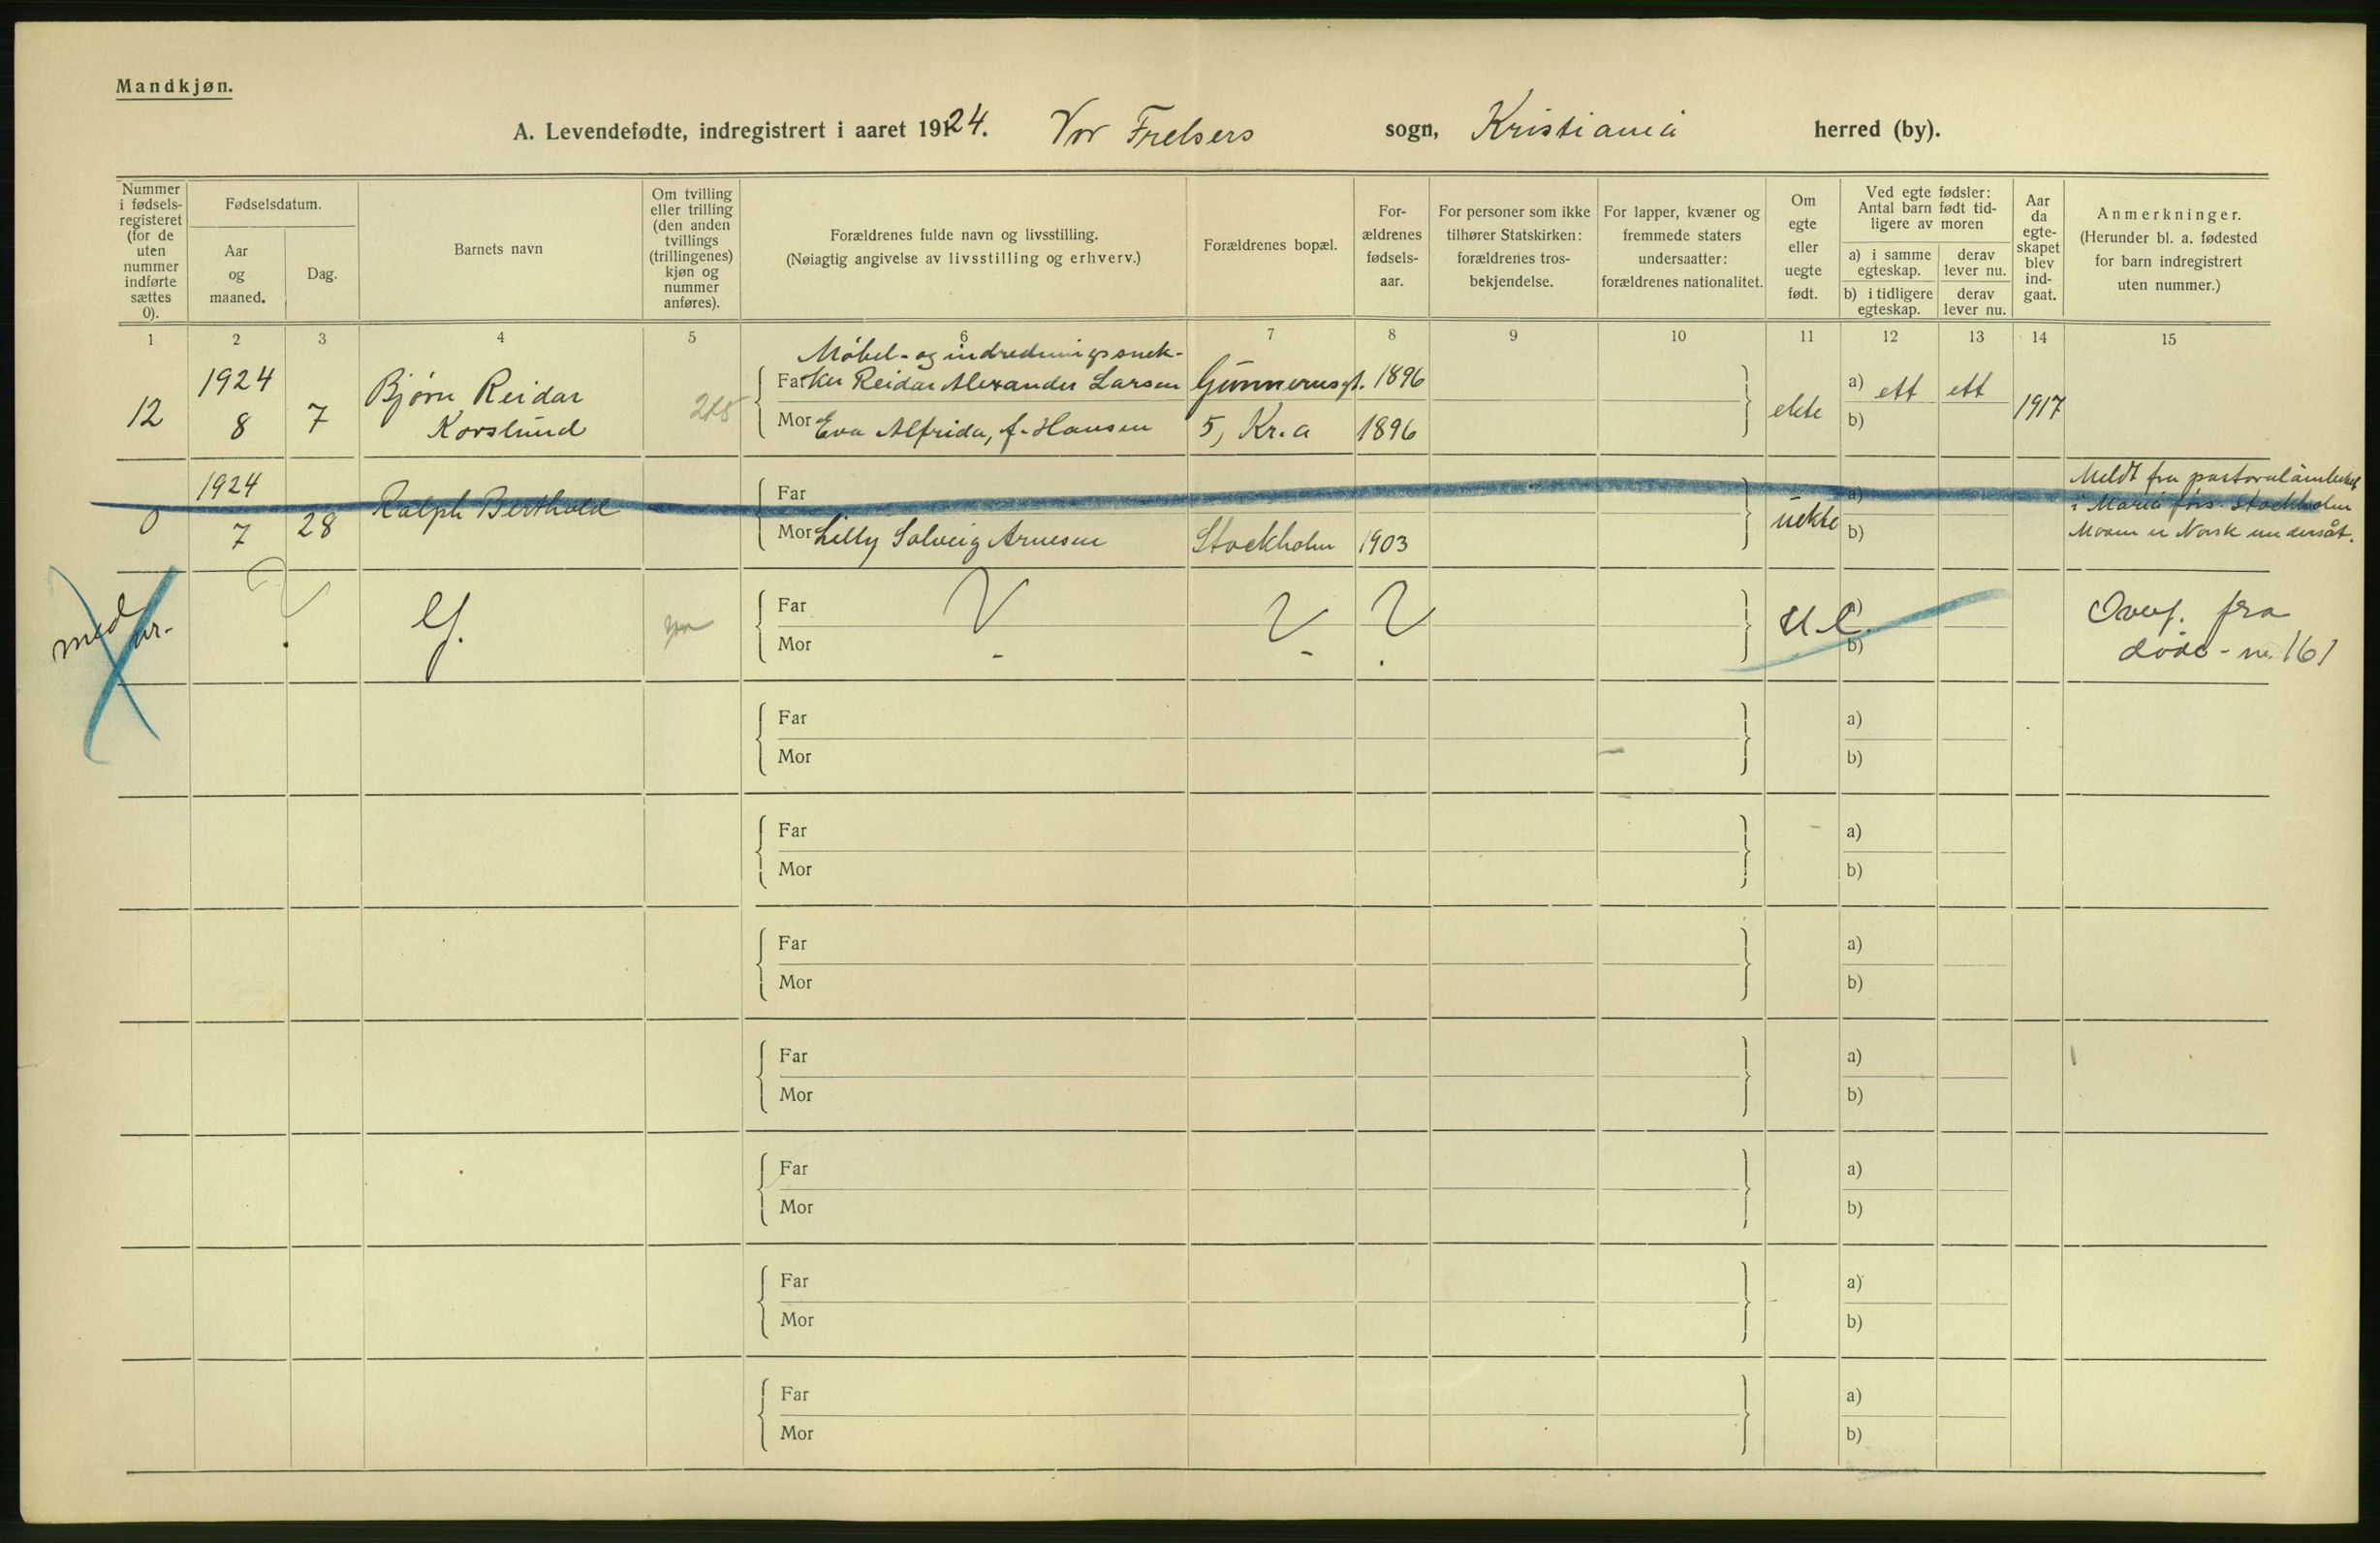 Mandkjøn.
A. Levendefødte, indregistrert i aaret 1924. Vor Frelsers sogn, Kristiania herred (by).
Nummer
i fødsels-
registeret
(for de
uten
nummer
indførte
sættes
0).
Fødselsdatum.
Aar
og
maaned.
Dag.
Barnets navn
Om tvilling
eller trilling
(den anden
tvillings
(trillingenes)
kjøn og
nummer
anføres).
Forældrenes fulde navn og livsstilling.
(Nøiagtig angivelse av livsstilling og erhverv.)
Forældrenes bopæl.
For-
ældrenes
fødsels-
aar.
For personer som ikke
tilhører Statskirken:
forældrenes tros-
bekjendelse.
For lapper, kvæner og
fremmede staters
undersaatter:
forældrenes nationalitet.
Om
egte
eller
uegte
født.
Ved egte fødsler:
Antal barn født tid-
ligere av moren
a) i samme
egteskap.
derav
lever nu.
b) i tidligere
egteskap.
derav
lever nu.
Aar
da
egte-
skapet
blev
ind-
gaat.
Anmerkninger.
(Herunder bl. a. fødested
for barn indregistrert
uten nummer.)
1 2 3 4 5 6 7 8 9 10 11 12 13 14 15
12
1924
8
7
Bjørn Reidar
Korslund
215
Møbel- og indredningssnek-
Far ker Reidar Alexander Larsen
Mor Eva Alfrida, f. Hansen
Gunnerusgt.
5, Kr.a
1896
1896
ekte
a) ett ett
b)
1917
0
1924
7
28
Ralph Berthold
Far
Mor Lilly Solveig Arnesen
Stockholm
1903
uekte
a)
b)
Meldt fra pastoralämbetet
i Maria förs. Stockholm
Moren er Norsk undersåt.
med
nr.
?
G.
Far
Mor
?
?
?
U. E.
a)
b)
Overf. fra
døde - nr. 161
Far
Mor
a)
b)
Far
Mor
a)
b)
Far
Mor
a)
b)
Far
Mor
a)
b)
Far
Mor
a)
b)
Far
Mor
a)
b)
Far
Mor
a)
b)